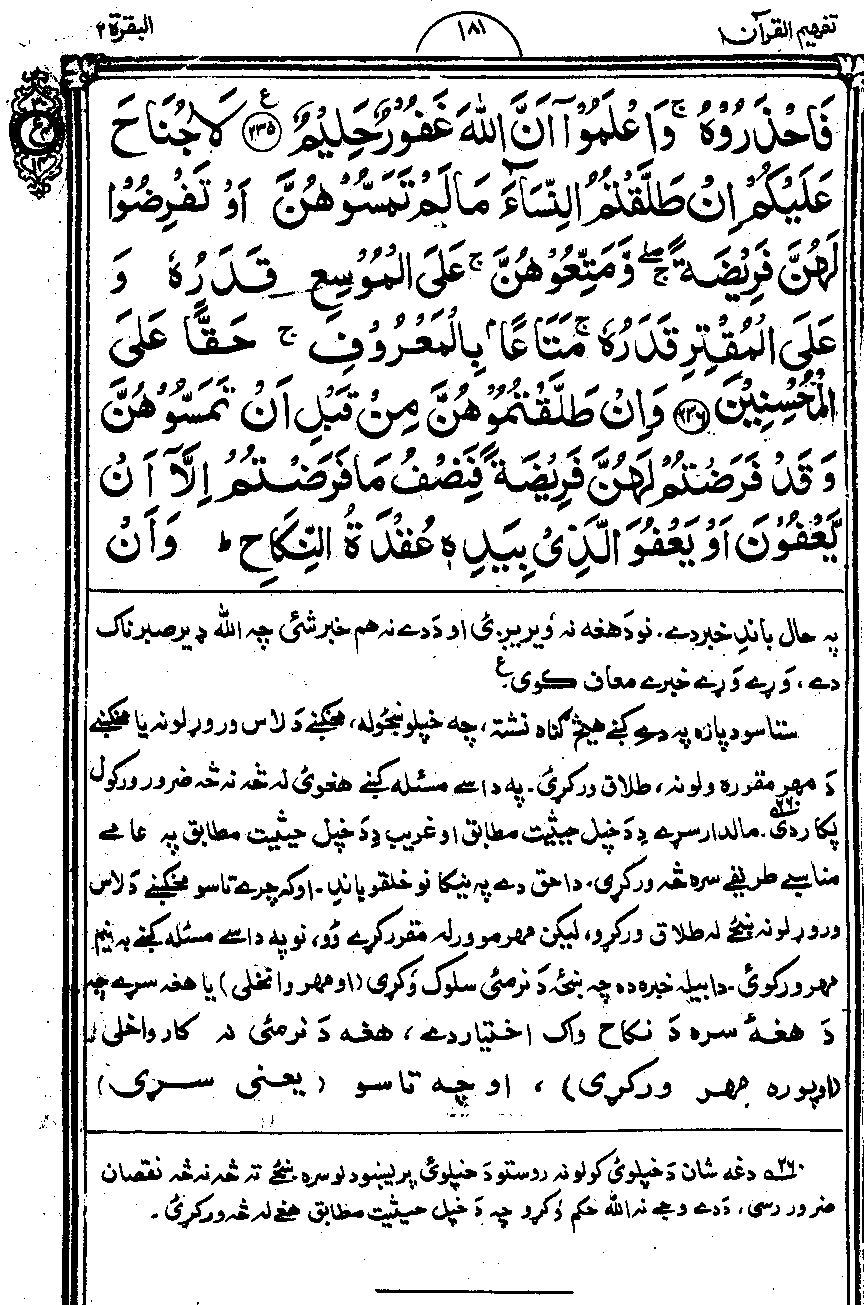 تفهيم القرآن ۱
۱۸۱
البقرة ۲
فَاحْذَرُوْهُ ۚ وَاعْلَمُوْٓا اَنَّ اللّٰهَ غَفُوْرٌ حَلِيْمٌ ﴿۲۳۵﴾ ع لَا جُنَاحَ
عَلَيْكُمْ اِنْ طَلَّقْتُمُ النِّسَآءَ مَا لَمْ تَمَسُّوْهُنَّ اَوْ تَفْرِضُوْا
لَهُنَّ فَرِيْضَةً ۚۖ وَّمَتِّعُوْهُنَّ ۚ عَلَى الْمُوْسِعِ قَدَرُهٗ وَ
عَلَى الْمُقْتِرِ قَدَرُهٗ ۚ مَتَاعًاۢ بِالْمَعْرُوْفِ ۚ حَقًّا عَلَى
الْمُحْسِنِيْنَ ﴿۲۳۶﴾ وَاِنْ طَلَّقْتُمُوْهُنَّ مِنْ قَبْلِ اَنْ تَمَسُّوْهُنَّ
وَقَدْ فَرَضْتُمْ لَهُنَّ فَرِيْضَةً فَنِصْفُ مَا فَرَضْتُمْ اِلَّآ اَنْ
يَّعْفُوْنَ اَوْ يَعْفُوَا الَّذِىْ بِيَدِهٖ عُقْدَةُ النِّكَاحِ ؕ وَاَنْ
په حال باندِ خبردے. نو دَهغه نه ویریږئ او دَدے نه هم خبر شئی چه الله ډیر صبرناک
دے، وَړے وَړے خبرے معاف کوی. ع
ستاسو دپاره په دے کښے هیڅ ګناه نشته، چه خپلو ښځو له، مخکښے دَ لاس وروړلو نه یا مخکښے
دَ مهر مقرره ولو نه، طلاق ورکړئ. په داسے مسئله کښے هغوئ له څه نه څه ضرور ورکول
پکار دئ ۲۶۰. مالدار سړے دِ دَ خپل حیثیت مطابق او غریب دِ دَ خپل حیثیت مطابق په عامے
مناسبے طریقے سره څه ورکړی. دا حق دے په نیکا نو خلقو باندِ. او که چرے تاسو مخکښے دَ لاس
وروړلو نه ښځے له طلاق ورکړو، لیکن مهر مو ورله مقرر کړے وُو، نو په داسے مسئله کښے به نیم
مهر ورکوئ. دا بیله خبره ده چه ښځه دَ نرمئ سلوک وُکړی (او مهر وانخلی) یا هغه سړے چه
دَ هغهٔ سره دَ نکاح واک اختیار دے، هغه دَ نرمئ نه کار واخلی
(او پوره مهر ورکړی)، او چه تاسو (یعنی سړی)
۲۶۰ دغه شان دَ خپلوئ کولو نه روستو دَ خپلوئ پریښودلو سره ښځے ته څه نه څه نقصان
ضرور رسی، دَدے وجے نه الله حکم وُکړو چه دَ خپل حیثیت مطابق هغے له څه ورکړئ.